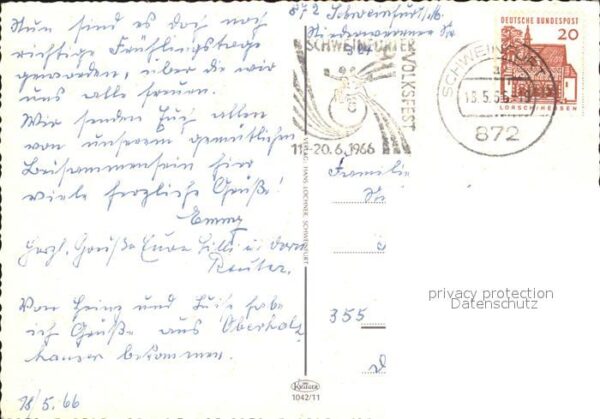 Nun sind es doch noch
richtige Frühlingstage
geworden, über die wir
uns alle freuen.
Wir senden Euch allen
von unserem gemütlichen
Beisammensein hier
viele herzliche Grüße!
Emmy
Herzl. Grüße Eure Lilli u.
Reuter.
Von Heinz und Luise habe
ich Grüße aus Oberholz
hausen bekommen.
18/5.66
872 Schweinfurt/M.
Niederwerrner
SCHWEINFURTER
VOLKSFEST
11.-20.6.1966
SCHWEINFURT
872
DEUTSCHE BUNDESPOST
20
LORSCH/HESSEN
VERLAG HANS LOCHNER, SCHWEINFURT
1042/11
Familie
355
privacy protection
Datenschutz